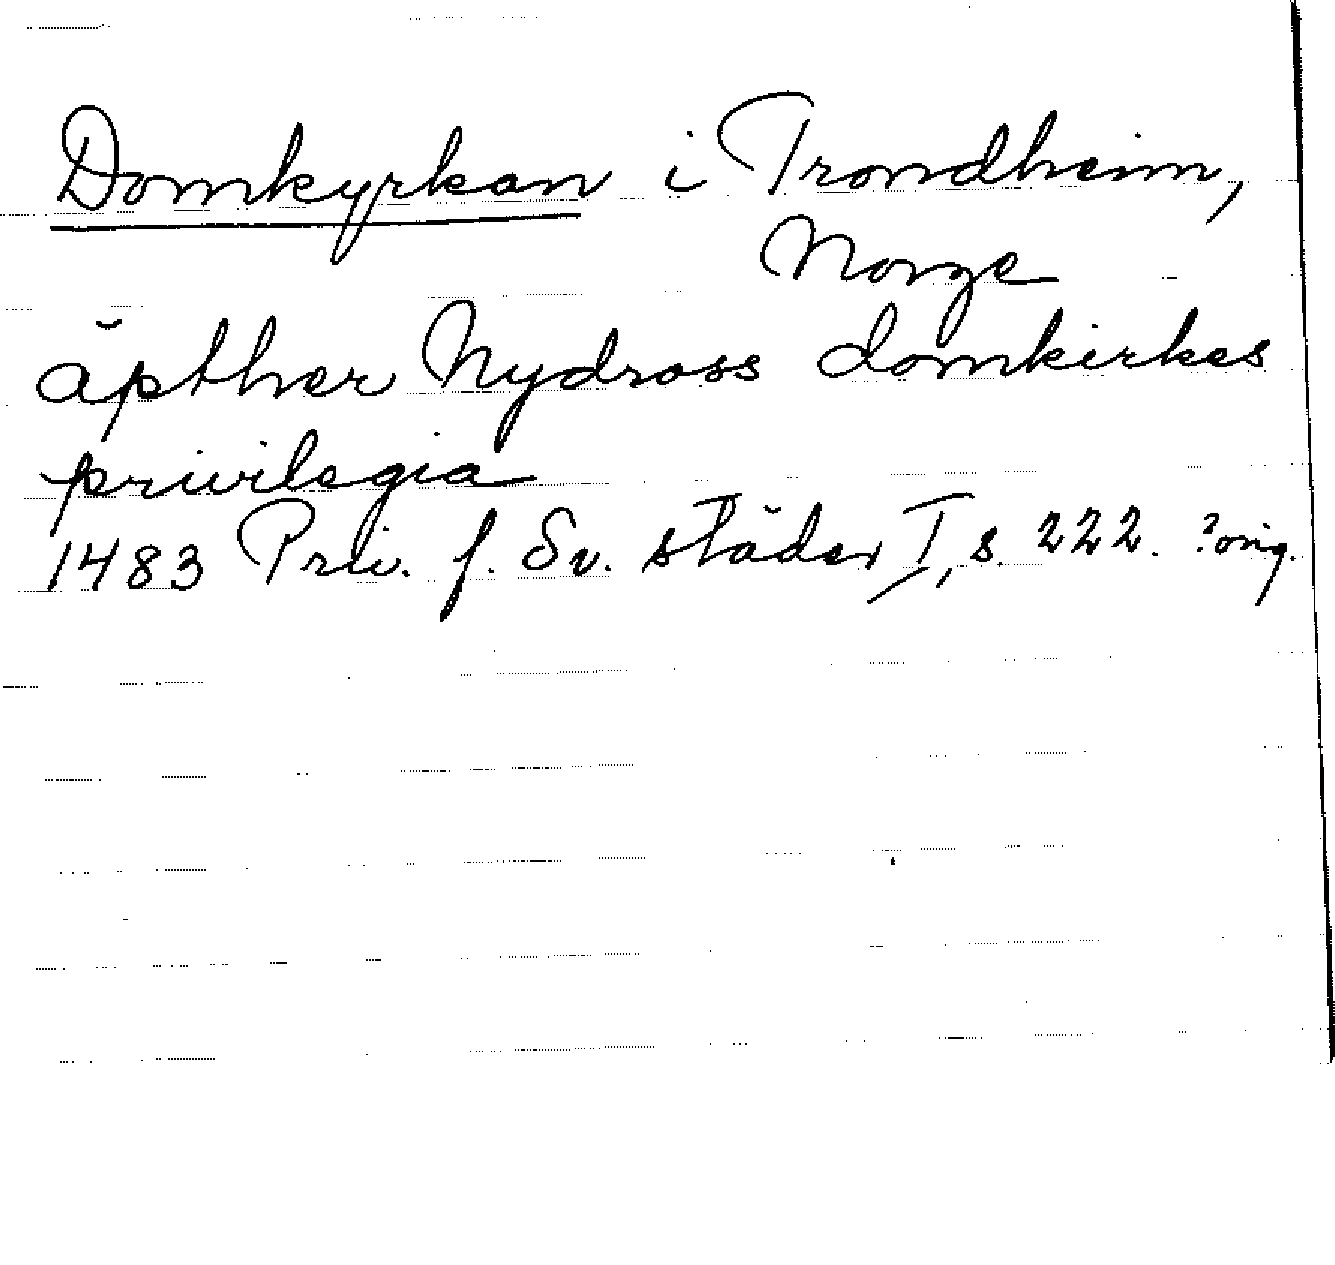 Domkyrkan i Trondheim,
Norge
äpther Nydross domkirkes
privilegia
1483 Priv. f. Sv. städer I, s. 222. ?orig.